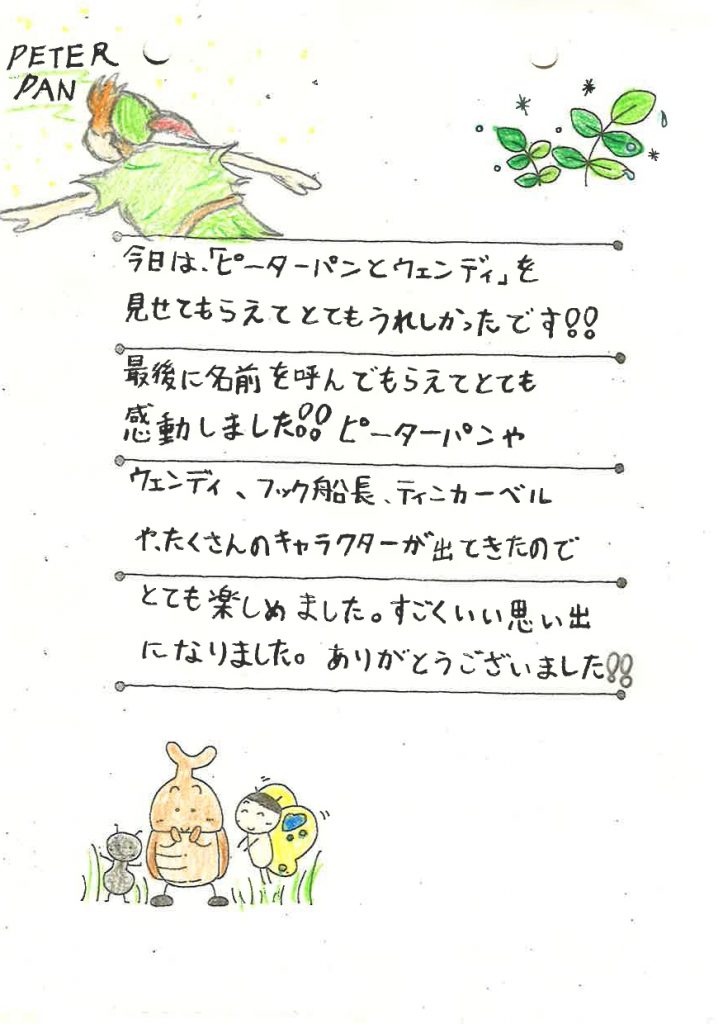 PETER
PAN
今日は、「ピーターパンとウェンディ」を
見せてもらえてとてもうれしかったです!!
最後に名前を呼んでもらえてとても
感動しました!! ピーターパンや
ウェンディ、フック船長、ティンカーベル
や、たくさんのキャラクターが出てきたので
とても楽しめました。すごくいい思い出
になりました。ありがとうございました!!